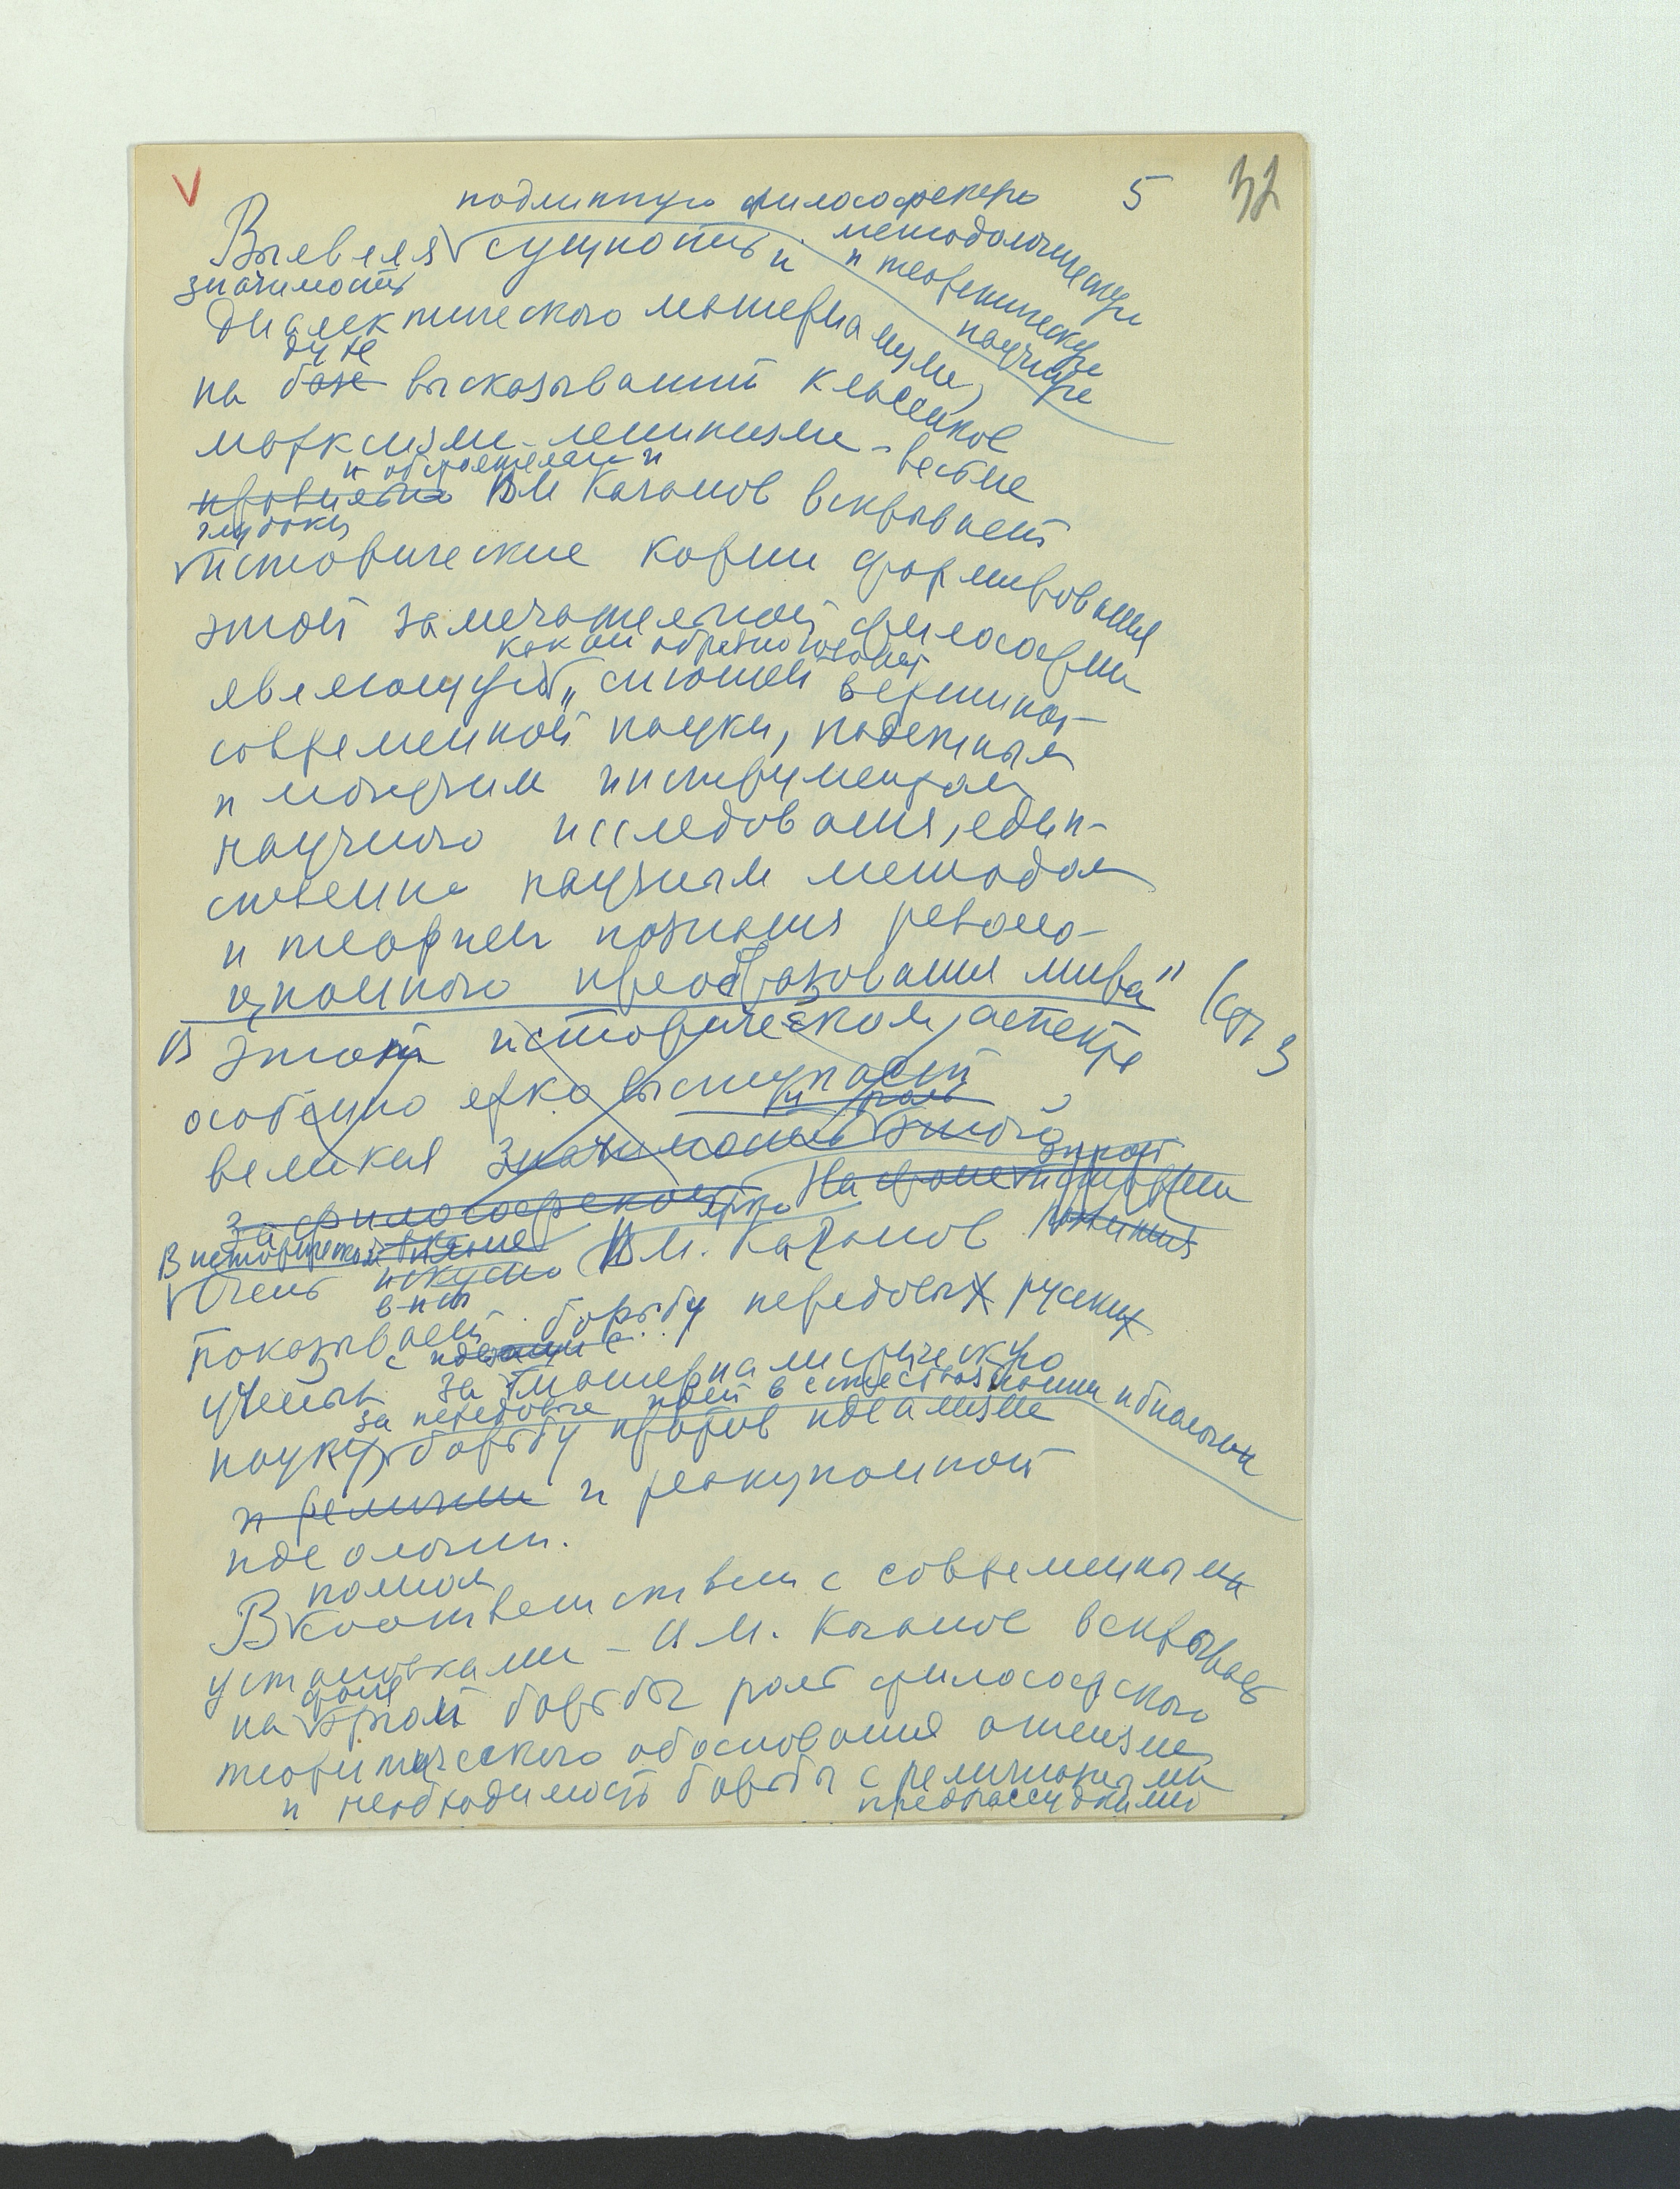 5 32
подлинную философскую
Выявляя сущность и методологическую
и теоретическую
научную
значимость
диалектического материализма,
духе
на базе высказываний классиков
марксизма-ленинизма - весьма
и обстоятельно и
правильно ВМ Каганов вскрывает
глубоки
исторические корни формирования
этой замечательной философии
как он образно говорит
являющейся "сияющей вершиной
современной науки, надежным
и могучим инструментом
научного исследования, един-
ственно научным методом
и теорией познания револю-
ционного преобразования мира" (стр 3
В этом историческом аспекте
особенно ярко выступает
и роль
великая значимость этой
философской На фоне истории
ярко
В историческом
Очень искусно В М. Каганов
показывает борьбу передовых русских
ученых за материалистическую
за передовые идеи в естествознании и биологии
науку, борьбу против идеализма
и религии и реакционной
идеологии.
полном
В соответствии с современными
установками - В М. Каганов вскрывает
фоне
на этой борьбы роль философского
теоретического обоснования атеизма
и необходимость борьбы с религиозными
предрассудками